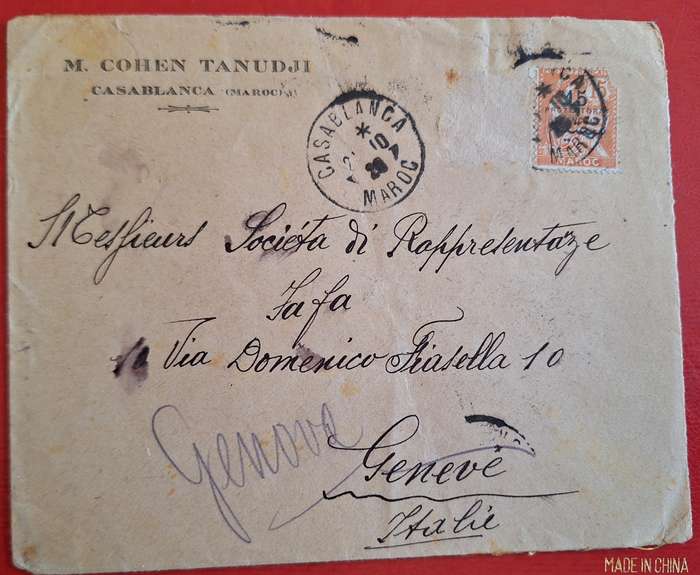 M. COHEN TANUDJI
CASABLANCA (MAROC)
CASABLANCA
10
MAROC
15
MAROC
MAROC
Messieurs Societa di Rappresentaze
Jafa
Via Domenico Fiasella 10
Genova
Geneve
Italie
MADE IN CHINA